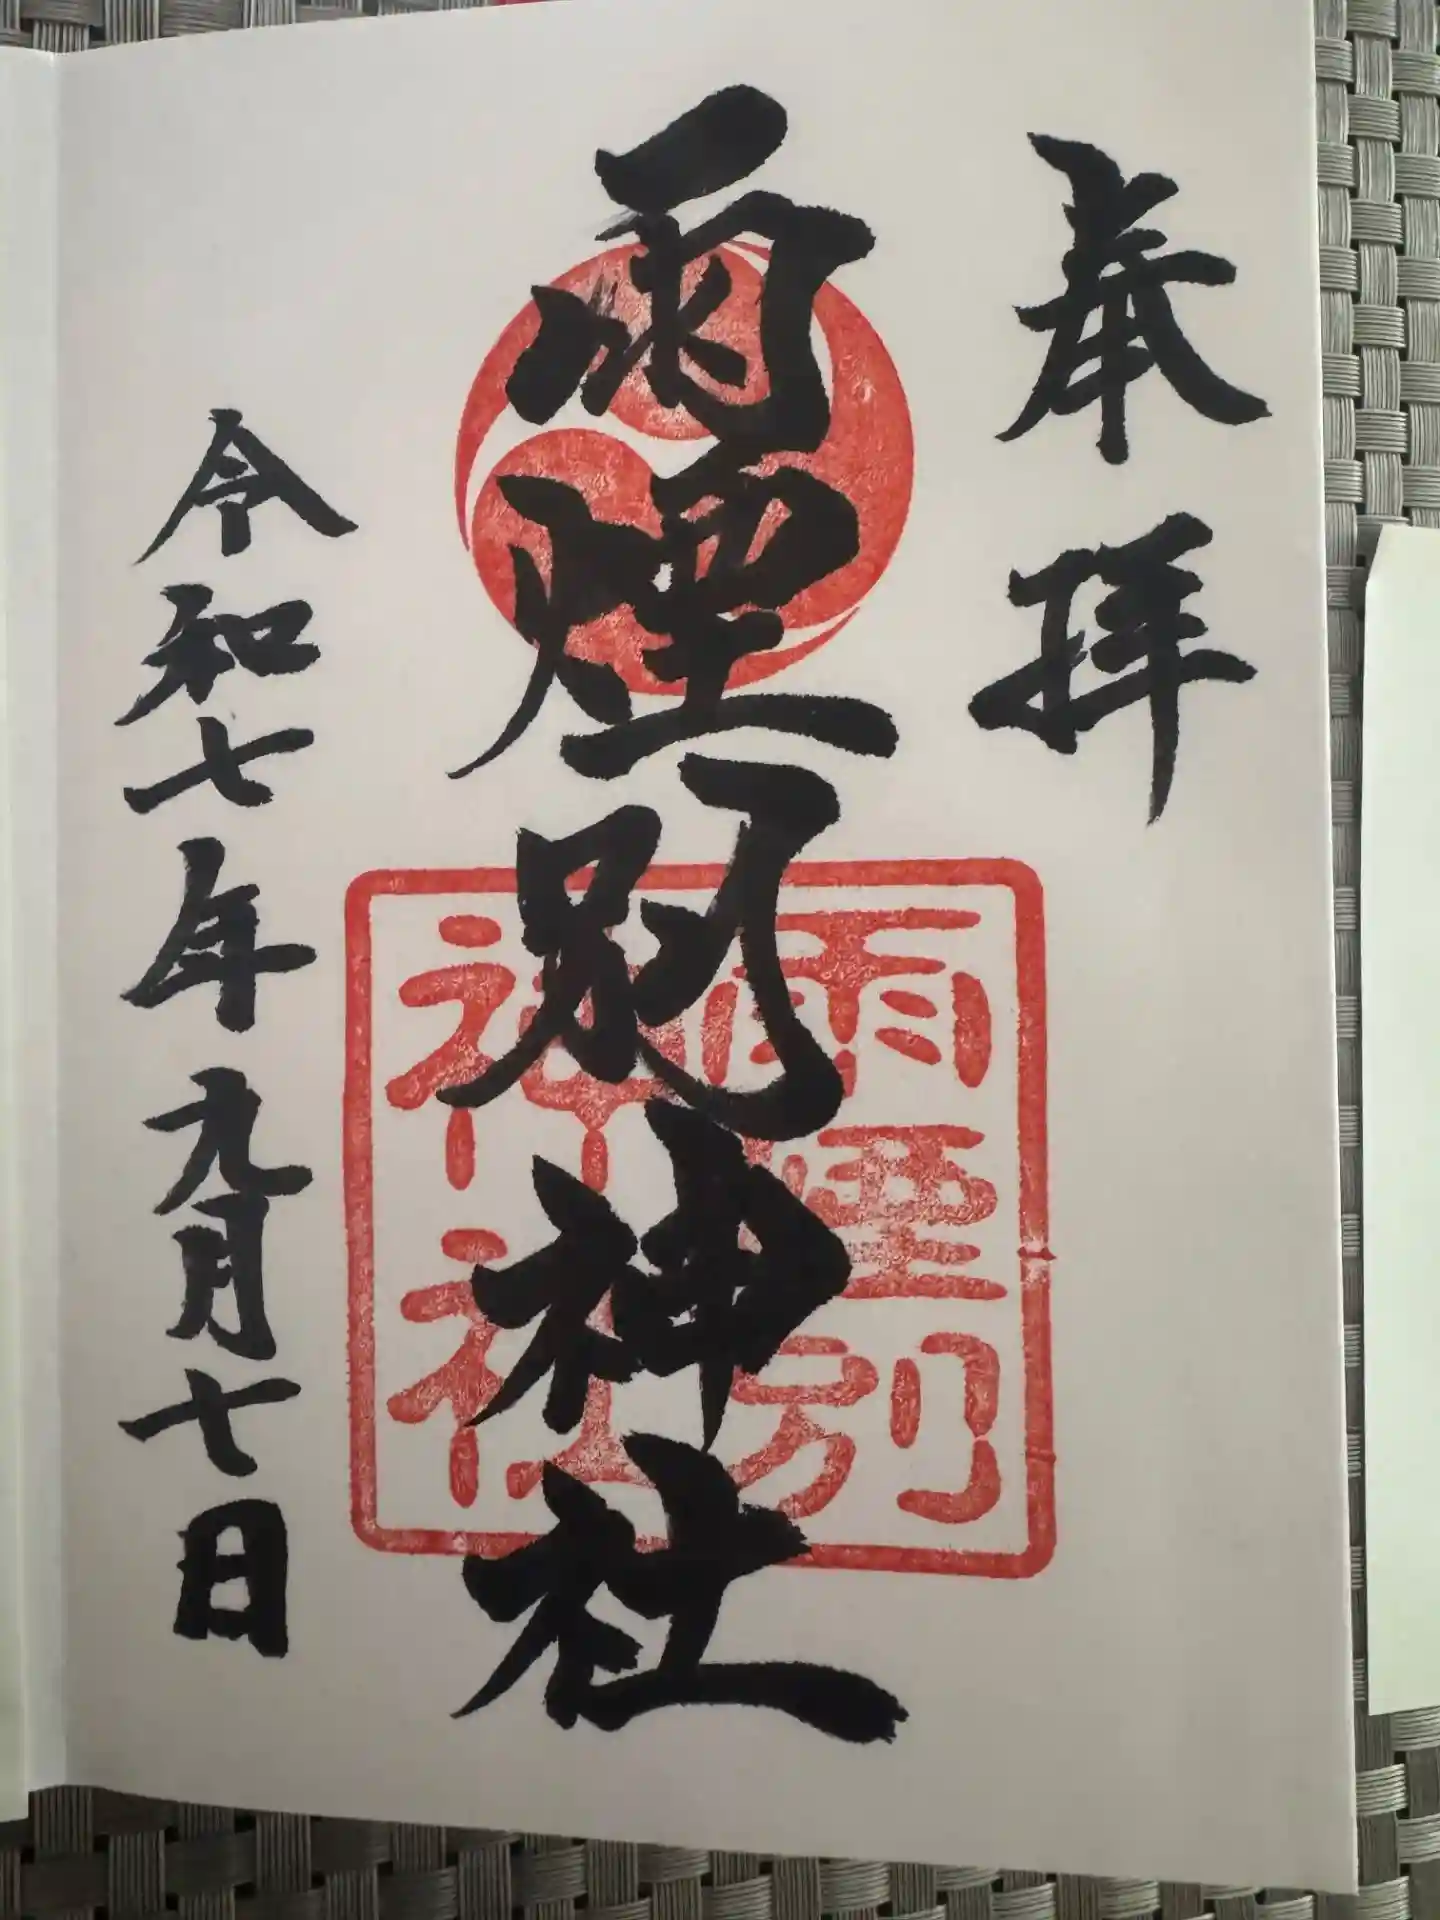 奉拝
雨煙別神社
雨煙別
神社
令和七年九月七日